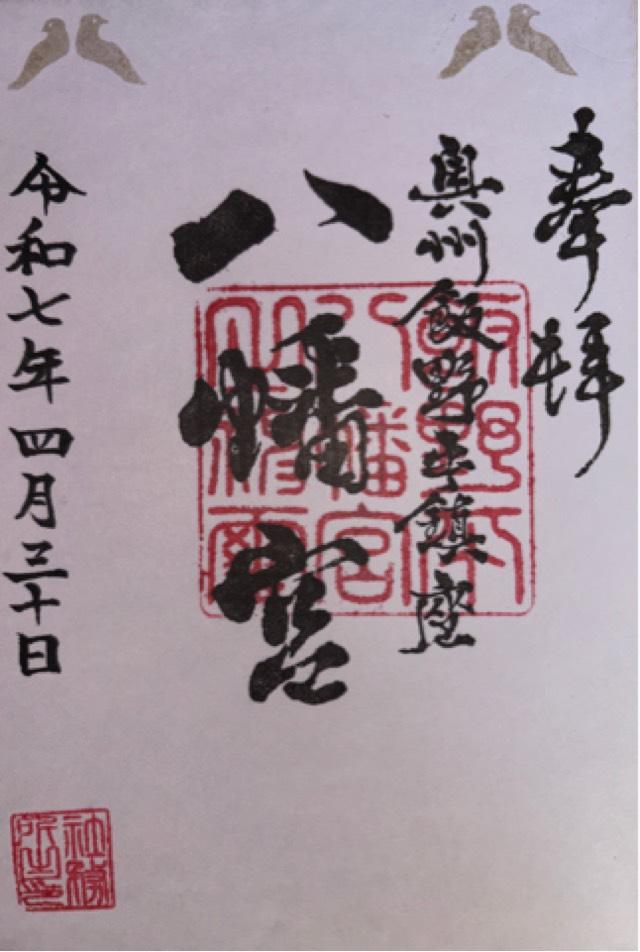 奉拝
奥州飯野平鎮座
八幡宮
令和七年四月三十日
飯野平
八幡宮
社務所之印